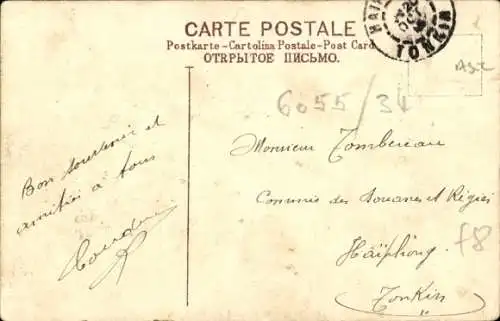 CARTE POSTALE
Postkarte - Cartolina Postale - Post Card
ОТКРЫТОЕ ПИСЬМО.
TONKIN
6055/34
Bon souvenir et
amitiés à tous
Monsieur Tombereau
Commis des Douanes et Régies
Haïphong
Tonkin
F8